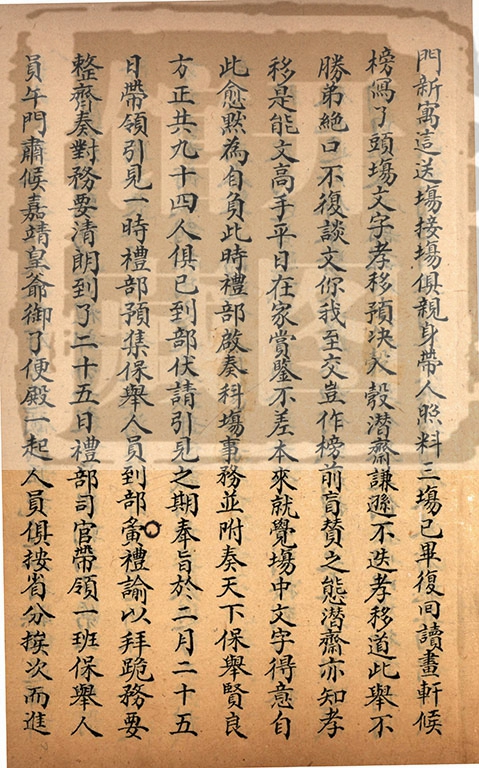 門新寓這送塲接塲俱親身帶人照料三塲已畢復回讀畫軒候
榜寫了頭塲文字孝移預决入彀潜齋謙遜不迭孝移道此舉不
勝弟絶口不復談文你我至交豈作榜前盲贊之態潜齋亦知孝
移是能文高手平日在家賞鑒不差本來就覺塲中文字得意自
此愈默為自負此時禮部啟奏科塲事務並附奏天下保舉賢良
方正共九十四人俱已到部伏請引見之期奉旨於二月二十五
日帶領引見一時禮部預集保舉人員到部黌禮諭以拜跪務要
整齊奏對務要清朗到了二十五日禮部司官帶領一班保舉人
員午門肅候嘉靖皇爺御了便殿一起人員俱按省分挨次而進